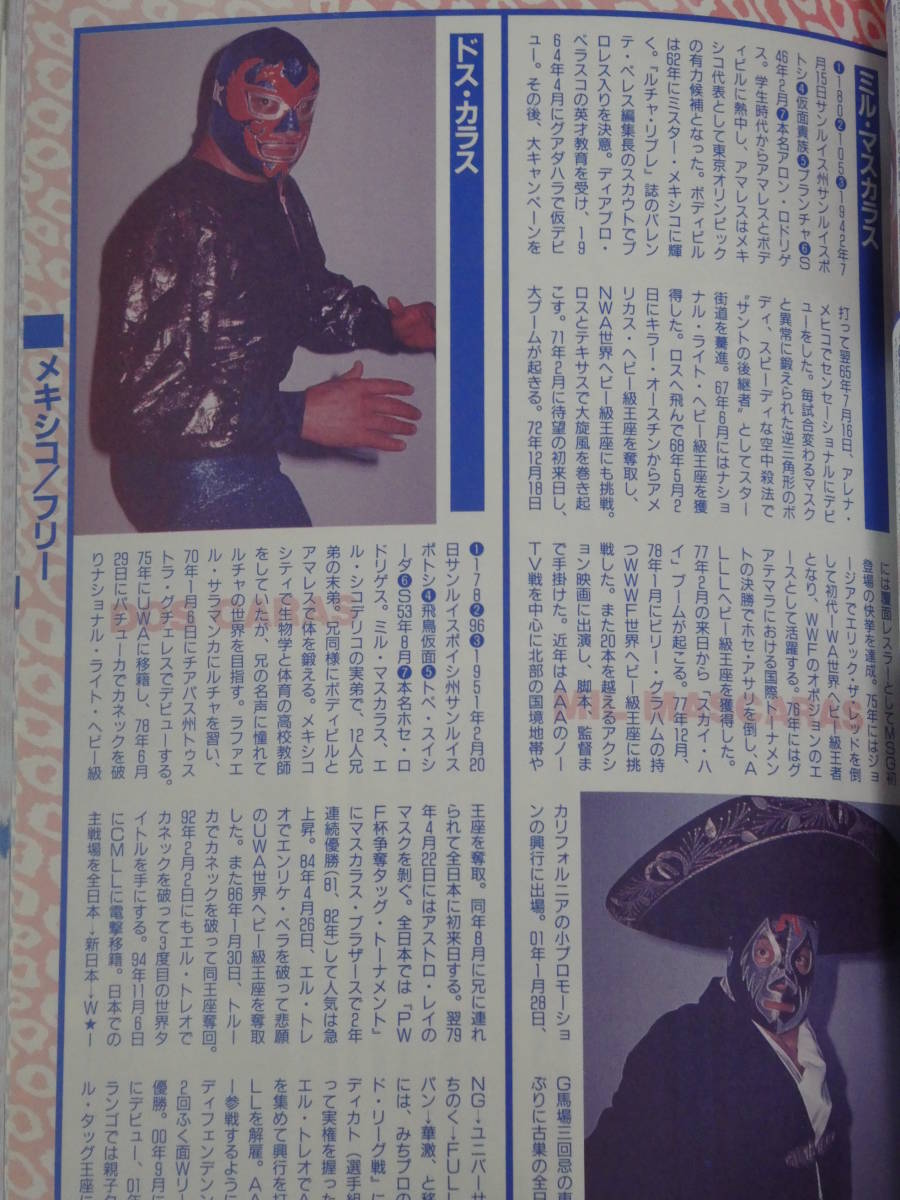 ミル・マスカラス
❶180❷105❸1942年7
月15日サンルイス州サンルイスポ
トシ❹仮面貴族❺プランチャ❻S
46年2月❼本名アロン・ロドリゲ
ス。学生時代からアマレスとボデ
ィビルに熱中し、アマレスはメキ
シコ代表として東京オリンピック
の有力候補となった。ボディビル
は62年にミスター・メキシコに輝
く。『ルチャ・リブレ』誌のバレン
テ・ペレス編集長のスカウトでプ
ロレス入りを決意。ディアブロ・
ベラスコの英才教育を受け、19
64年4月にグアダハラで仮デビ
ュー。その後、大キャンペーンを
打って翌65年7月16日、アレナ・
メヒコでセンセーショナルにデビ
ューをした。毎試合変わるマスク
と異常に鍛えられた逆三角形のボ
ディ、スピーディな空中殺法で
〝サントの後継者〟としてスター
街道を驀進。67年6月にはナショ
ナル・ライト・ヘビー級王座を獲
得した。ロスへ飛んで68年5月2
日にキラー・オースチンからアメ
リカス・ヘビー級王座を奪取し、
NWA世界ヘビー級王座にも挑戦。
ロスとテキサスで大旋風を巻き起
こす。71年2月に待望の初来日し、
大ブームが起きる。72年12月18日
には覆面レスラーとしてMSG初
登場の快挙を達成。75年にはジョ
ージアでエリック・ザ・レッドを倒
して初代IWA世界ヘビー級王者
となり、WWFのオポジションのエ
ースとして活躍する。76年にはグ
アテマラにおける国際トーナメン
トの決勝でホセ・アサリを倒し、A
LLLヘビー級王座を獲得した。
77年2月の来日から「スカイ・ハ
イ」ブームが起こる。77年12月、
78年1月にビリー・グラハムの持
つWWWF世界ヘビー級王座に挑
戦した。また20本を越えるアクシ
ョン映画に出演し、脚本、監督ま
で手掛けた。近年はAAAのノー
TV戦を中心に北部の国境地帯や
カリフォルニアの小プロモーショ
ンの興行に出場。01年1月28日、
G馬場三回忌の東
ぶりに古巣の全日
MIL MASCARAS
ドス・カラス
❶178❷96❸1951年2月20
日サンルイスポイシ州サンルイス
ポトシ❹飛鳥仮面❺トペ・スイシ
ーダ❻S53年8月❼本名ホセ・ロ
ドリゲス。ミル・マスカラス、エ
ル・シコデリコの実弟で、12人兄
弟の末弟。兄同様にボディビルと
アマレスで体を鍛える。メキシコ
シティで生物学と体育の高校教師
をしていたが、兄の名声に憧れて
ルチャの世界を目指す。ラファエ
ル・サラマンカにルチャを習い、
70年1月6日にチアパス州トゥス
トラ・グチェレスでデビューする。
75年にUWAに移籍し、78年6月
29日にパチューカでカネックを破
りナショナル・ライト・ヘビー級
王座を奪取。同年8月に兄に連れ
られて全日本に初来日する。翌79
年4月22日にはアストロ・レイの
マスクを剥ぐ。全日本では『PW
F杯争奪タッグ・トーナメント』
にマスカラス・ブラザースで2年
連続優勝（81、82年）して人気は急
上昇。84年4月26日、エル・トレ
オでエンリケ・ベラを破って悲願
のUWA世界ヘビー級王座を奪取
した。また86年1月30日、トルー
カでカネックを破って同王座奪回。
92年2月2日にもエル・トレオで
カネックを破って3度目の世界タ
イトルを手にする。94年11月6日
にCMLLに電撃移籍。日本での
主戦場を全日本→新日本→W★ー
NG→ユニバーサ
ちのく→FULL
パン→華激、と移
には、みちプロの
ド・リーグ戦』に
ディカト（選手組
って実権を握った
エル・トレオでA
を集めて興行を打
LLを解雇。AA
ー参戦するように
ディフェンデン
2回ふく面Wリー
優勝。00年9月に
にデビュー、01年
ランゴでは親子タ
ル・タッグ王座に
DOS CARAS
メキシコ／フリー